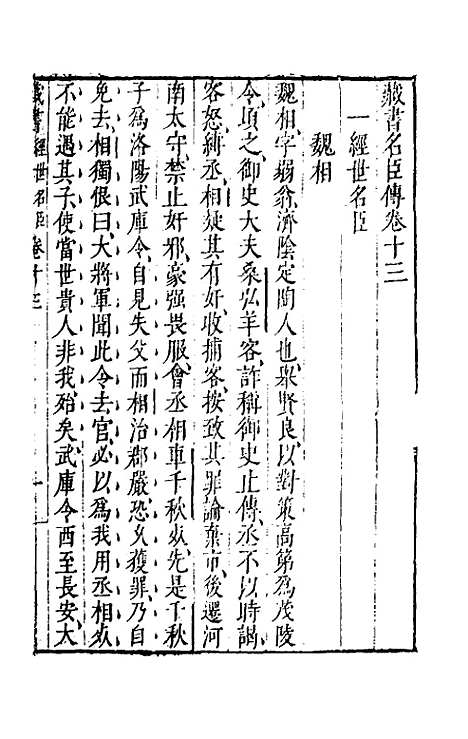 藏書名臣傳卷十三
一經世名臣
魏相
魏相、字弱翁、濟陰定陶人也、舉賢良、以對策高第爲茂陵
令、頃之、御史大夫桑弘羊客、詐稱御史止傳、丞不以時謁、
客怒縛丞、相疑其有奸、收捕客、按致其罪、論棄市、後遷河
南太守、禁止奸邪、豪强畏服、會丞相車千秋死、先是千秋
子爲洛陽武庫令、自見失父、而相治郡嚴、恐久獲罪、乃自
免去、相獨恨曰、大將軍聞此令去官、必以爲我用丞相死
不能遇其子、使當世貴人非我、殆矣、武庫令西至長安、大
藏書 經世名臣 卷十三 一